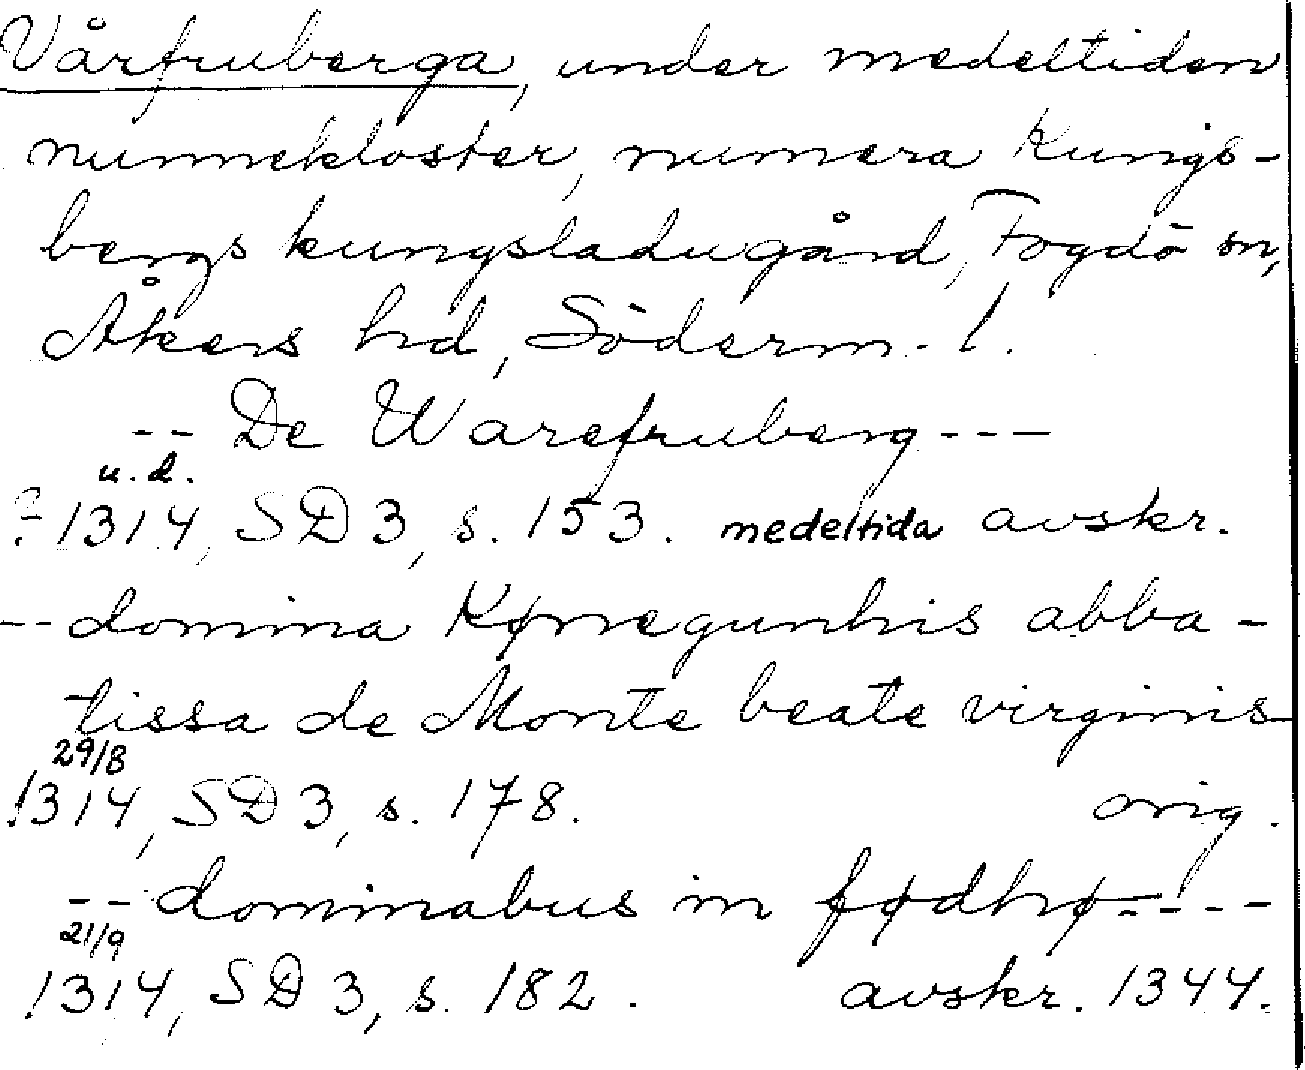 Vårfruberga, under medeltiden
nunnekloster, numera Kungs-
bergs kungsladugård, Fogdö sn,
Åkers hd, Söderm. l.
-- De Warefruberg ---
u.d.
? 1314, SD 3, s. 153. medeltida avskr.
-- domina Kønegundis abba-
tissa de Monte beate virginis
29/8
1314, SD 3, s. 178. orig.
-- dominabus in fødhø----
21/9
1314, SD 3, s. 182. avskr. 1344.